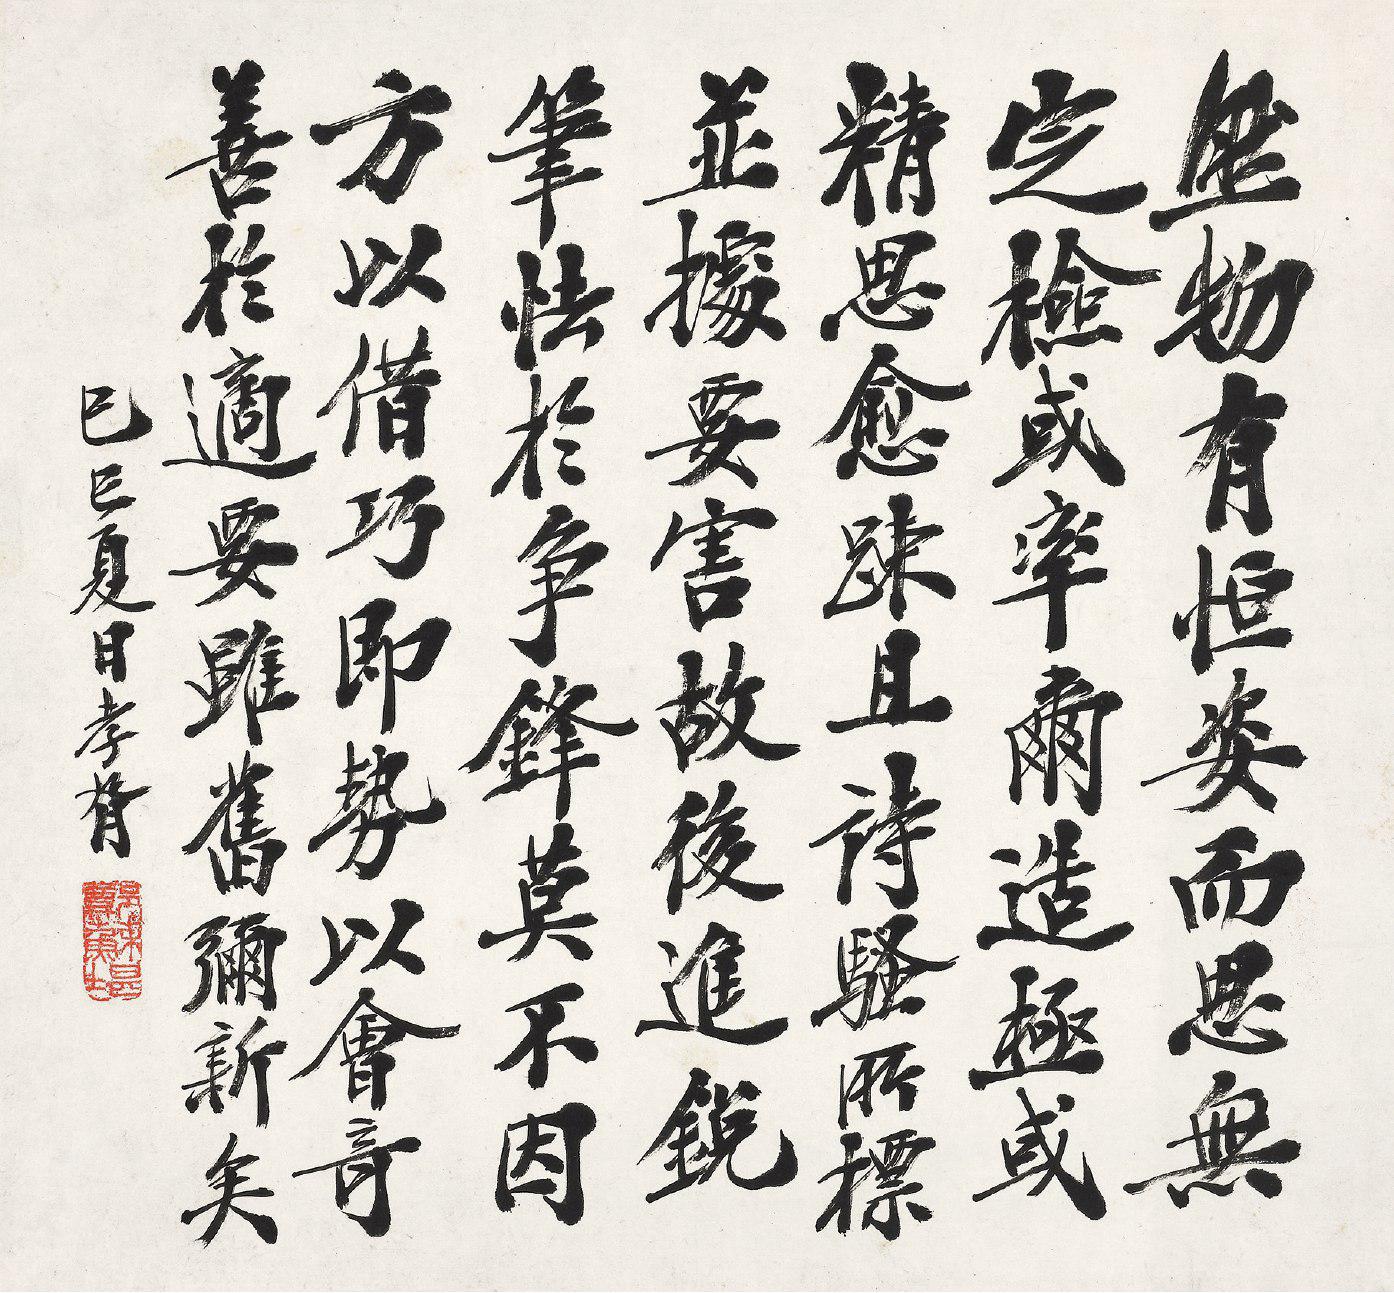 然物有恒姿而思無
定檢或率爾造極或
精思愈踈且詩騷所標
並據要害故後進銳
筆怯於争鋒莫不因
方以借巧即勢以會奇
善於適要雖舊彌新矣
己巳夏日孝胥